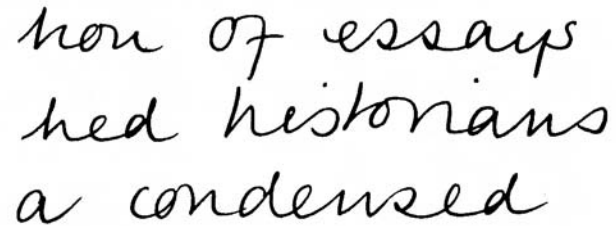 tion of essays
hed historians
a condensed